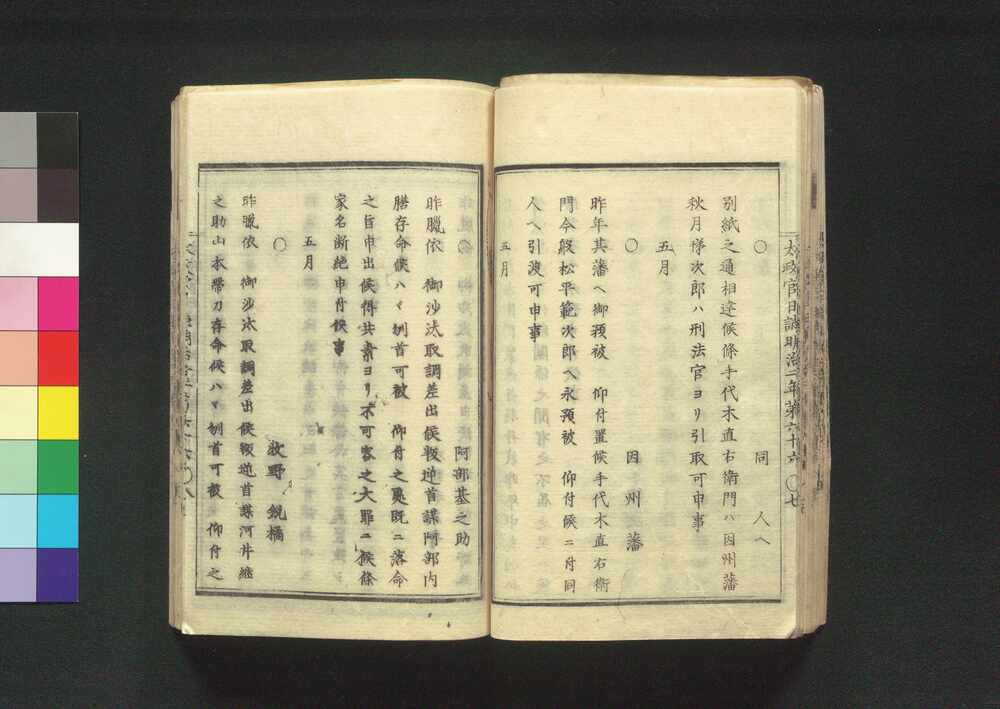 太政官日誌明治二年第六十六 〇七
〇 同人ヘ
別紙之通相達候條手代木直右衛門ハ因州藩
秋月悌次郎ハ刑法官ヨリ引取可申事
五月
〇 因州藩
昨年其藩ヘ御預被 仰付置候手代木直右衛
門今般松平範次郎ヘ永預被 仰付候ニ付同
人ヘ引渡可申事
五月
阿部基之助
昨臘依 御沙汰取調差出候叛逆首謀阿部内
膳存命候ハヽ刎首可被 仰付之處既ニ落命
之旨申出候得共素ヨリ不可容之大罪ニ候條
家名断絶申付候事
五月
〇 牧野鋭橘
昨臘依 御沙汰取調差出候叛逆首謀河井継
之助山本帶刀存命候ハヽ刎首可被 仰付之